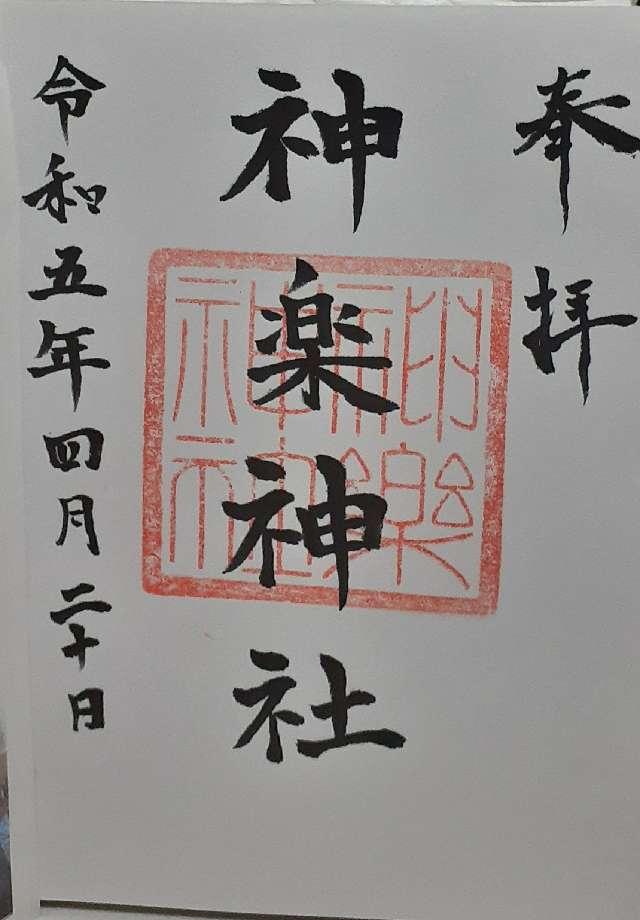 奉拝
神楽神社
令和五年四月二十日